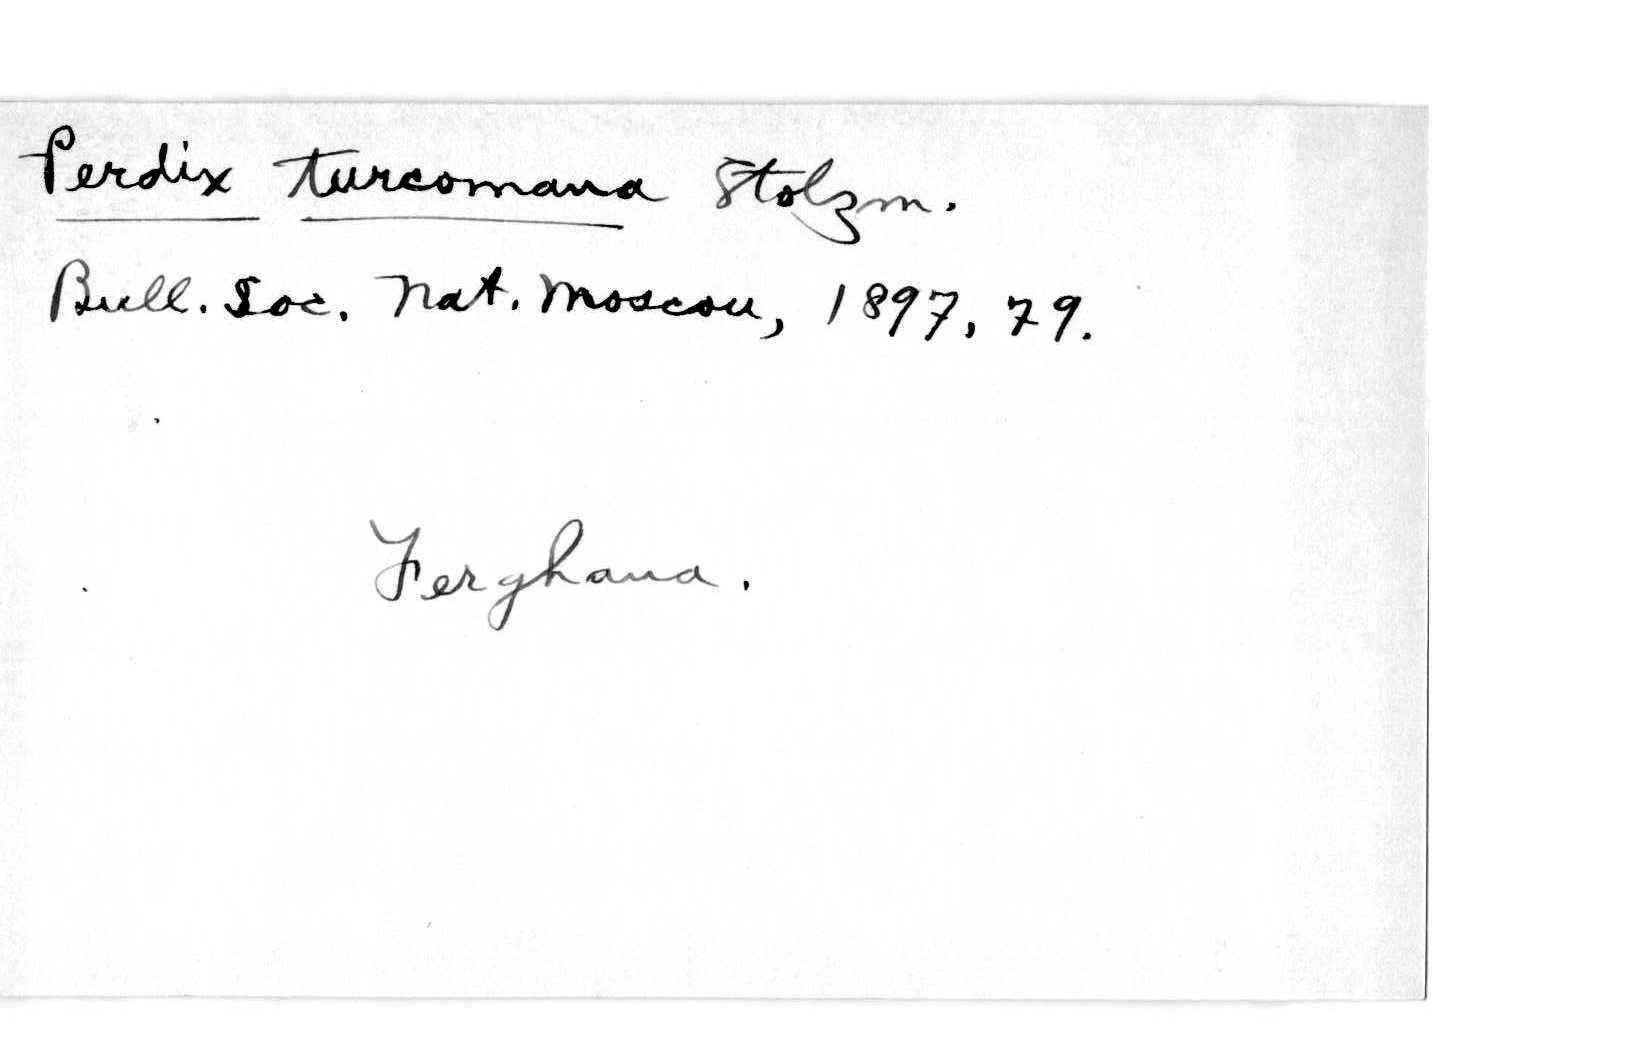 Perdix turcomana Stolzm.
Bull. Soc. Nat. Moscou, 1897, 79.
Ferghana.